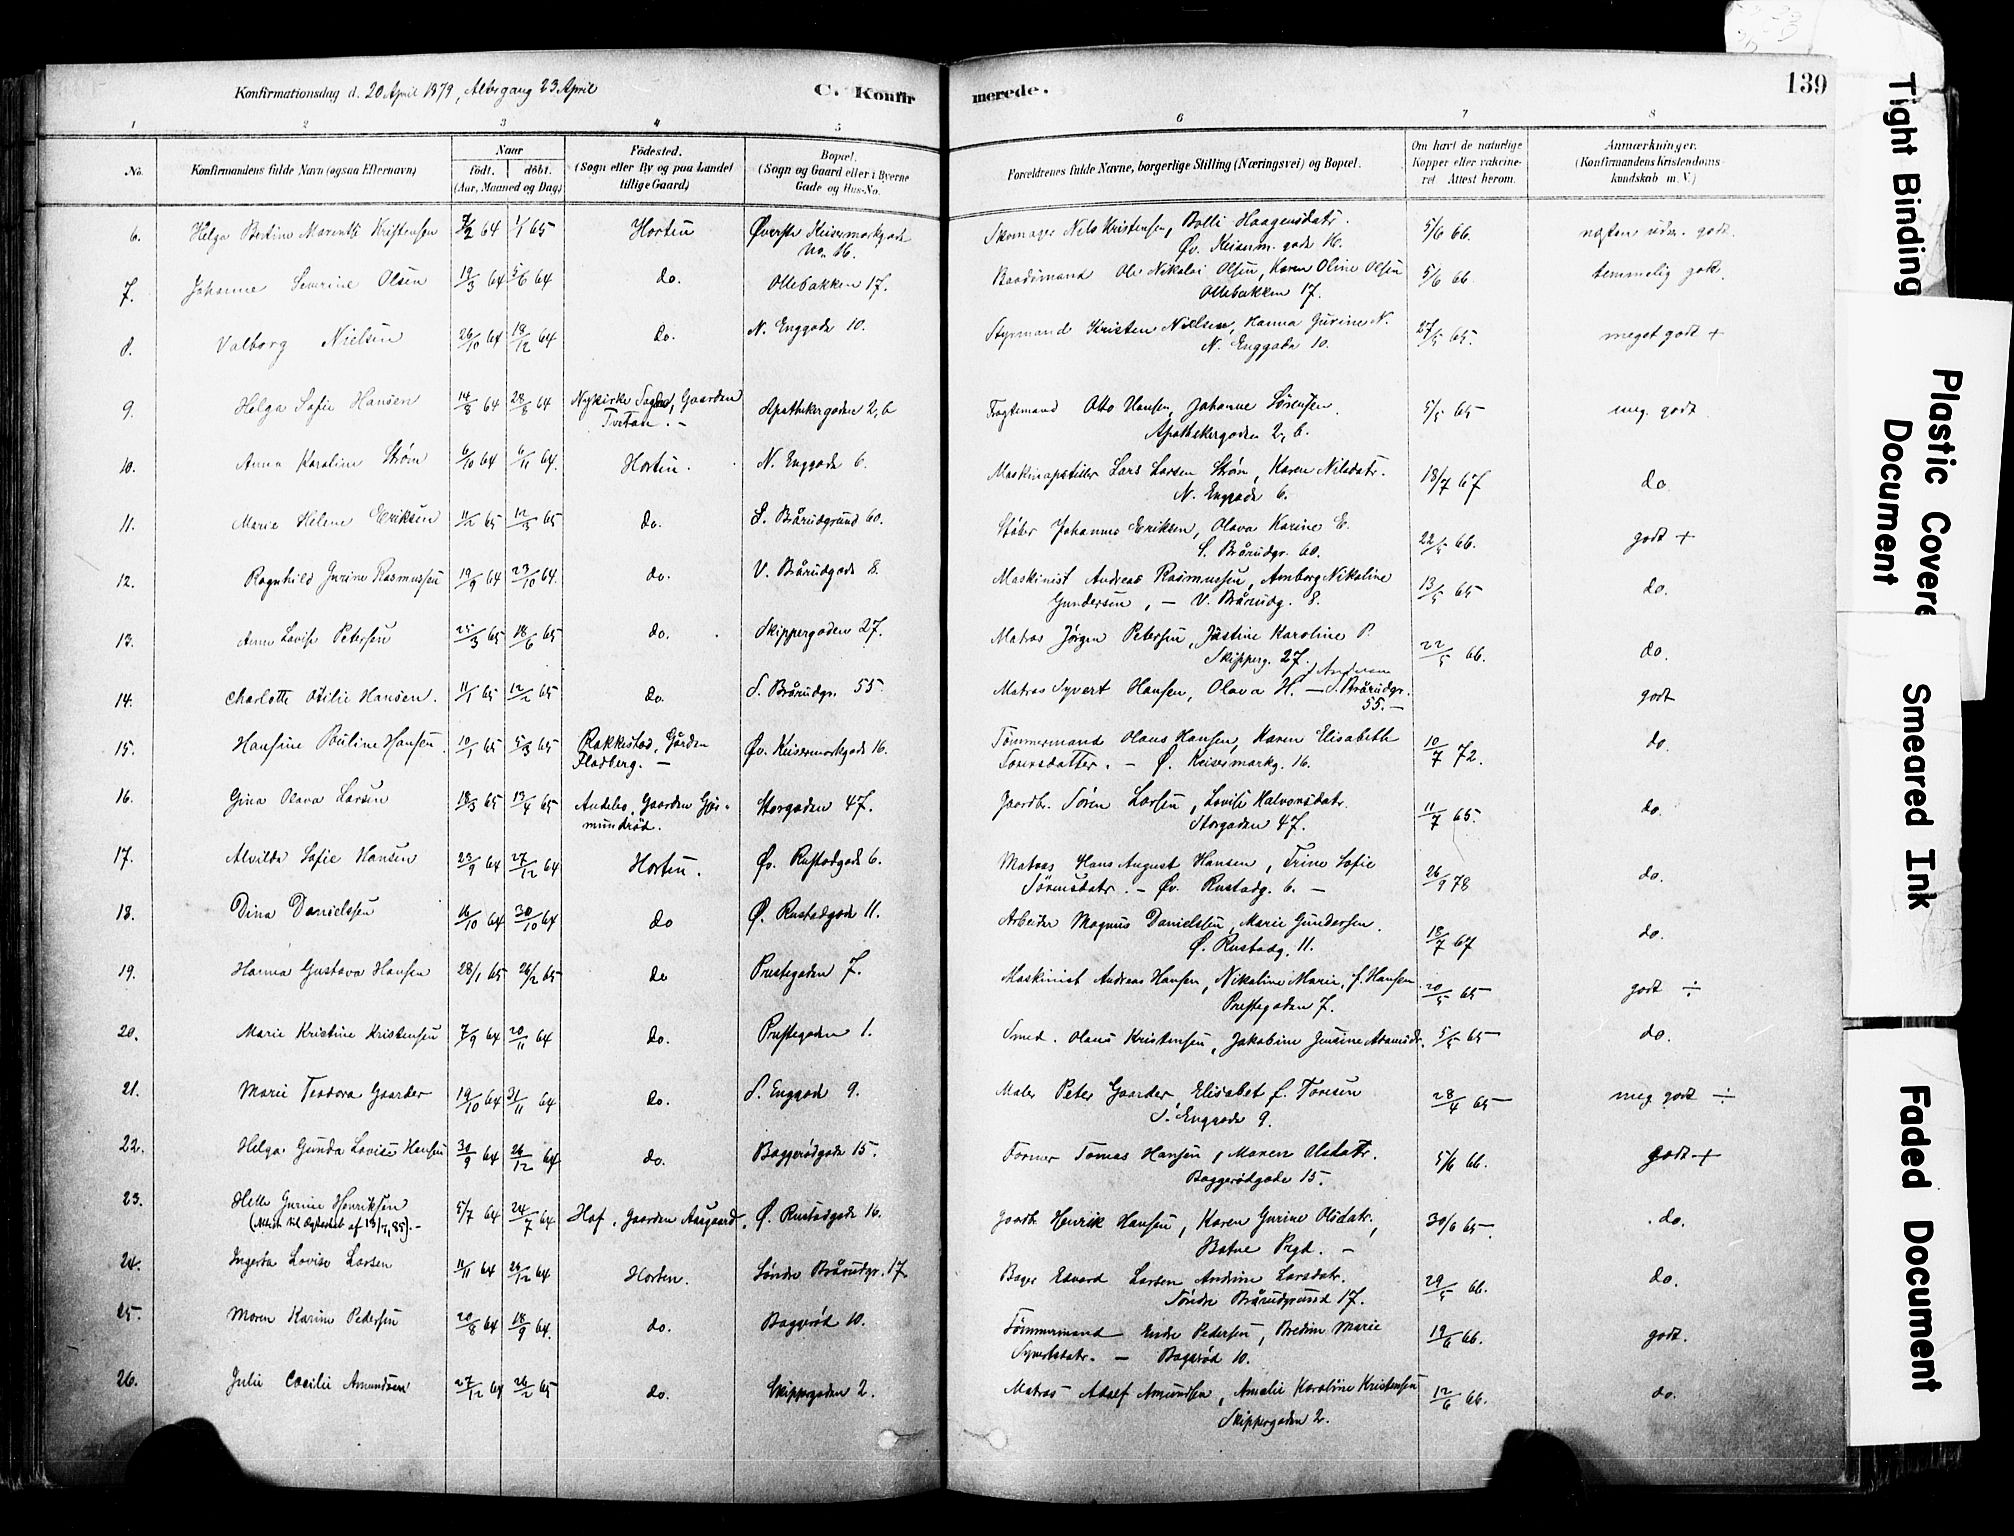 Konfirmationsdag d. 20 April 1879, Altergang 23 April
C. Konfir
merede.
139
1 2 3 4 5 6 7 8
No.
Konfirmandens fulde Navn (ogsaa Efternavn)
Naar
født. døbt.
(Aar, Maaned og Dag)
Fødested.
(Sogn eller By og paa Landet
tillige Gaard)
Bopæl.
(Sogn og Gaard eller i Byerne
Gade og Hus-No.
Forældrenes fulde Navne, borgerlige Stilling (Næringsvei) og Bopæl.
Om havt de naturlige
Kopper eller vakcine-
ret Attest herom.
Anmærkninger.
(Konfirmandens Kristendoms-
kundskab m. V.)
6. Helga Bertine Marentse Kristensen 64 1/1 65 Horten Øverste Keisermarkgade
No. 16.
Skomager Nils Kristensen, Bolli Haagensdatr.
Øv. Keiserm. gade 16.
5/6 66. næsten udm. godt.
7. Johanne Severine Olsen 19/3 64 5/6 64 do. Ollebakken 17.
Baadsmand Ole Nikolai Olsen, Karen Oline Olsen
Ollebakken 17.
5/6 66. temmelig godt.
8. Valborg Nielsen 26/10 64 18/12 64 do. N. Enggade 10.
Styrmand Kristen Nielsen, Hanna Gurine N.
N. Enggade 10.
27/5 65. meget godt +
9. Helga Sofie Hansen 14/8 64 28/8 64 Nykirke Sogn, Gaarden
Tveten. - Apothekergaden 2, b
Fragtemand Otto Hansen, Johanne Sørensen.
Apothekergaden 2, b.
5/5 65 meg. godt
10. Anna Karoline Strøm 6/10 64 6/11 64. Horten. N. Enggade 6.
Maskinopstiller Lars Larsen Strøm, Karen Nilsdatr.
N. Enggade 6.
18/7 67 do
11. Marie Helene Eriksen 11/2 65 12/3 65 do. S. Brårudgrund 60.
Støber Johannes Eriksen, Olava Karine E.
S. Brårudgr. 60.
22/5 66. godt +
12. Ragnhild Gurine Rasmussen 19/9 64 23/10 64. do. V. Brårudgade 8.
Maskinist Andreas Rasmussen, Amborg Nikoline
Gundersen, - V. Brårudg. 8.
13/5 65 do.
13. Anne Lovise Petersen 25/3 65 18/6 65 do. Skippergaden 27.
Matros Jørgen Petersen, Justine Karoline P.
Skipperg. 27.
22/5 66. do.
14. Charlotte Otilie Hansen. 11/1 65 12/2 65 do. S. Brårudgr. 55.
Matros Syvert Hansen, Olava H. - S. Brårudgr.
55. -
godt
15. Hansine Pauline Hansen. 10/1 65 5/3 65 Rakkestad, Gården
Fladberg. - Øv. Keisermarkgade 16.
Tømmermand Olaus Hansen, Karen Elisabeth
Torersdatter. - Ø. Keisermarkg. 16.
10/7 72. do.
16. Gina Olava Larsen 18/3 65 13/4 65 Andebo, Gaarden Gjer-
mundrød. Storgaden 47.
Gaardbr. Søren Larsen, Lovise Halvorsdatr.
Storgaden 47.
11/7 65. do.
17. Alvilde Sofie Hansen 23/9 64 27/12 64 Horten. Øv. Rustadgade 6.
Matros Hans August Hansen, Trine Sofie
Sørensdatr. - Øv. Rustadg. 6. -
26/9 78 do.
18. Dina Danielsen 16/10 64 30/10 64 do Ø. Rustadgade 11.
Arbeider Magnus Danielsen, Marie Gundersen.
Ø. Rustadg. 11.
18/7 67 do.
19. Hanna Gustava Hansen 28/1 65 26/2 65 do Prestegaden 7.
Maskinist Andreas Hansen, Nikoline Marie, f. Hansen.
Prestegaden 7.
20/5 65 godt ÷
20. Marie Kristine Kristensen 7/9 64 20/11 64 do. Prestegaden 1.
Smed. Olaus Kristensen, Jakobine Gurine Adamsdr.
5/5 65 do.
21. Marie Teodora Gaarder 19/10 64 64 do. S. Enggade 9.
Maler Peter Gaarder, Elisabet f. Toresen
S. Enggade 9.
28/4 65 meg godt ÷
22. Helga Gunda Lovise Hansen 30/9 64 26/12 64 do. Baggerødgade 15.
Former Tomas Hansen, Maren Olsdatr.
Baggerødgade 15.
5/6 66. godt +
23. Helle Gurine Henriksen
(Attest til Ægteskab af 85). -
5/7 64 24/7 64 Hof, Gaarden Aasgaard. Ø. Rustadgade 16.
Gaardb. Henrik Hansen, Karen Gurine Olsdatr.,
Botne Prgd. -
30/6 65 do.
24. Ingerta Lovise Larsen 11/11 64 26/12 64 Horten. Søndre Brårudgr. 17.
Bager Edvard Larsen Andrine Larsdatr.
Søndre Brårudgrund 17.
29/5 66. do.
25. Maren Karine Pedersen 20/8 64 18/9 64. do. Baggerød 10.
Tømmermand Endre Pedersen, Bredine Marie
Syvertsdatr. - Baggerød 10.
19/6 66. godt.
26. Julie Cæcilie Amundsen 27/12 64 26/2 65 do. Skippergaden 2.
Matros Adolf Amundsen, Amalie Karoline Kristensen
Skippergaden 2.
12/6 66. do.
Tight Binding
Plastic Covere
Document
Smeared Ink
Faded Document